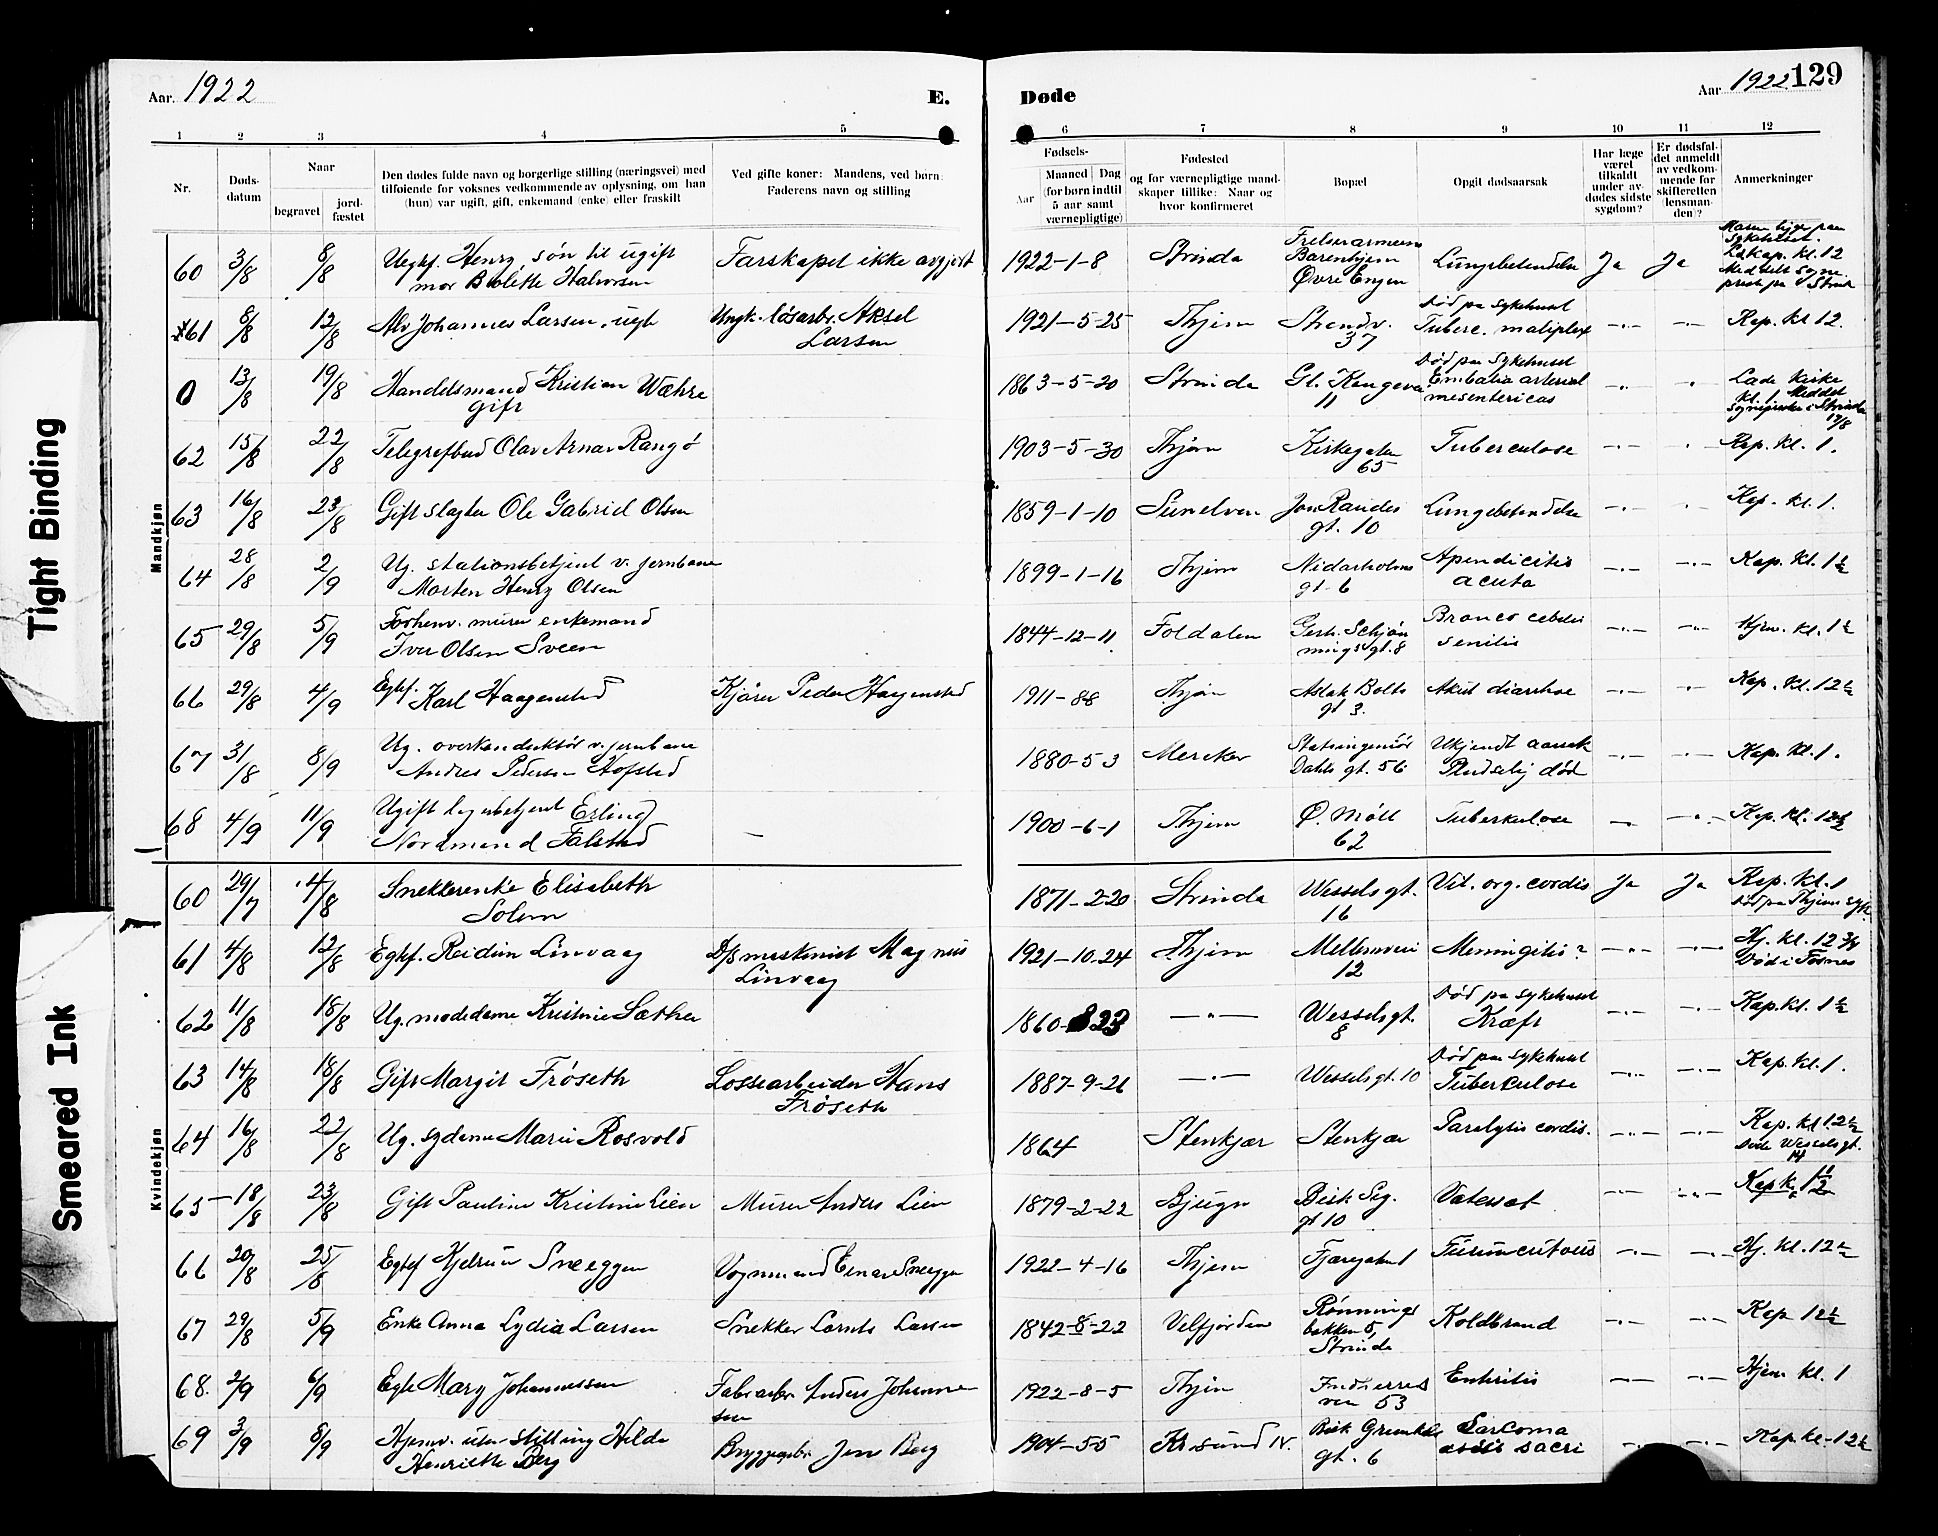 Tight Binding
Smeared Ink
Aar. 1922
E.
Døde
Aar 1922
129
1 2 3 4 5 6 7 8 9 10 11 12
Nr.
Døds-
datum
Naar
begravet
jord-
fæstet
Den dødes fulde navn og borgerlige stilling (næringsvei) med
tilføiende for voksnes vedkommende av oplysning, om han
(hun) var ugift, gift, enkemand (enke) eller fraskilt
Ved gifte koner: Mandens, ved børn:
Faderens navn og stilling
Fødsels-
Aar
Maaned Dag
(for børn indtil
5 aar samt
værnepligtige)
Fødested
og for værnepligtige mand-
skaper tillike: Naar og
hvor konfirmeret
Bopæl
Opgit dødsaarsak
Har læge
været
tilkaldt
under av-
dødes sidste
sygdom?
Er dødsfal-
det anmeldt
av vedkom-
mende for
skifteretten
(lensman-
den)?
Anmerkninger
Mandkjøn
60 3/8 8/8 Uegkf. Henry, søn til ugift
mor Bolette Halvorsen
Farskapet ikke avgjort
1922-1-8 Strinda
Frelsesarmeens
Barnehjem
Øvre Engen
Lungebetendelse Ja Ja
kl. 12
61 8/8 12/8 Alv Johannes Larsen, ugft
Ungk. løsarbr. Aksel
Larsen
1921-5-25 Thjem Strandv.
37
Død paa sykehuset
Tuberc. multiplex
-"- -"- Kap. kl 12.
0 13/8 19/8 Handelsmand Kristian Wæhre
gift
1863-5-20 Strinda Gl. Kongevei
11
Død paa sykehuset
Embolia arterial
mesentericas
Lade kirke
kl. 1. Meddelt
sogneprest i Strinda
17/8
62 15/8 22/8 Telegrafbud Olav Arnar Rangø
1903-5-30 Thjem Kirkegaten
65
Tuberculose -"- Kap. kl. 1.
63 16/8 23/8 Gift slagter Ole Gabriel Olsen
1859-1-10 Sunelven Jon Raudes
gt. 10
Lungebetendelse -"- -"- Kap. kl. 1.
64 28/8 2/9 Ug. stationsbetjent v. jernbane
Morten Henry Olsen
1899-1-16 Thjem Nidarholms
gt. 6
Apendicitis
acuta
-"- -"- Kap. kl. 1½
65 29/8 5/9 Forhenv. murer enkemand
Iver Olsen Sveen
1844-12-11 Foldalen Gerh. Schjøn
nings gt. 8
senilis
-"- -"- Hjem. kl. 1½
66 29/8 4/9 Egkf. Karl Haagenstad
Kjører Peder Haagenstad
1911-8-8 Thjem Aslak Bolts
gt 3.
Akut diarrhoe -"- -"- Kap. kl. 12½
67 31/8 8/9 Ug. overkonduktør v. jernbane
Andres Pedersen Hofstad
1880-5-3 Meraker Statsingeniør
Dahls gt. 56
Ukjendt aarsak
Pludselig død
-"- -"- Kap. kl. 1.
68 4/9 11/9 Ugift lagerbetjent Erling
Nordmand Falstad
1900-6-1 Thjem Ø. Møll
62
Tuberkulose -"- Kap. kl. 12½
Kvindekjøn
60 29/7 4/8 Snekkerenke Elisabeth
Solem
1871-2-20 Strinda Wesselsgt.
16
Vit. org. cordis Ja Ja Kap. kl. 1
Død paa Thjems syk.
61 4/8 12/8 Egkf. Reidun Linvaag
D/S maskinist Magnus
Linvaag
1921-10-24 Thjem Mellemveien
12
Meningitis? -"- -"- Hj. kl. 12¾
Død i Fosnes
62 11/8 18/8 Ug. modedame Kristine Sæther
1860-8-23 -"- Wesselsgt.
8
Død paa sykehuset
Kræft
-"- -"- Kap. kl. 1½
63 14/8 18/8 Gift Margit Frøseth
Lossearbeider Hans
Frøseth
1887-9-26 -"- Wesselsgt. 10
Død paa sykehuset
Tuberkulose
-"- -"- Kap. kl. 1.
64 16/8 22/8 Ug. sydame Marie Rosvold
1864 Stenkjær Stenkjær Paralysis cordis. -"- -"- Kap. kl 12½
Døde Wesselsgt.
14
65 18/8 23/8 Gift Pauline Kristine Lien
Murer Anders Lien
1879-2-22 Bjugn Bisk. Sig.
gt 10
Vatersot -"- -"- Kap kl 1½
66 20/8 25/8 Egkf Kjelrun Sneeggen
Vognmand Einar Sneeggen
1922-4-16 Thjem Fjæregaten 1
-"- -"- Hj. kl. 12½
67 29/8 5/9 Enke Anna Lydia Larsen
Snekker Lornts Larsen
1842-8-22 Velfjorden Rønnings
bakken 5,
Strinda
Koldbrand -"- -"- Kap 12½
68. 2/9 6/9 Egte Mary Johannessen
Fabrarbr. Anders Johannes
sen
1922-8-5 Thjem Innherreds
vei 53
Enteritis -"- -"- Hjem kl. 1
69 3/9 8/9 Hjemv. uten stilling Hilda
Henriette Berg
Bryggearbr. Jon Berg
1904-5-5 Kr.sund N. Bisk Grimkels
gt. 6
Sarcoma
ossis sacri
-"- -"- Kap kl. 12½